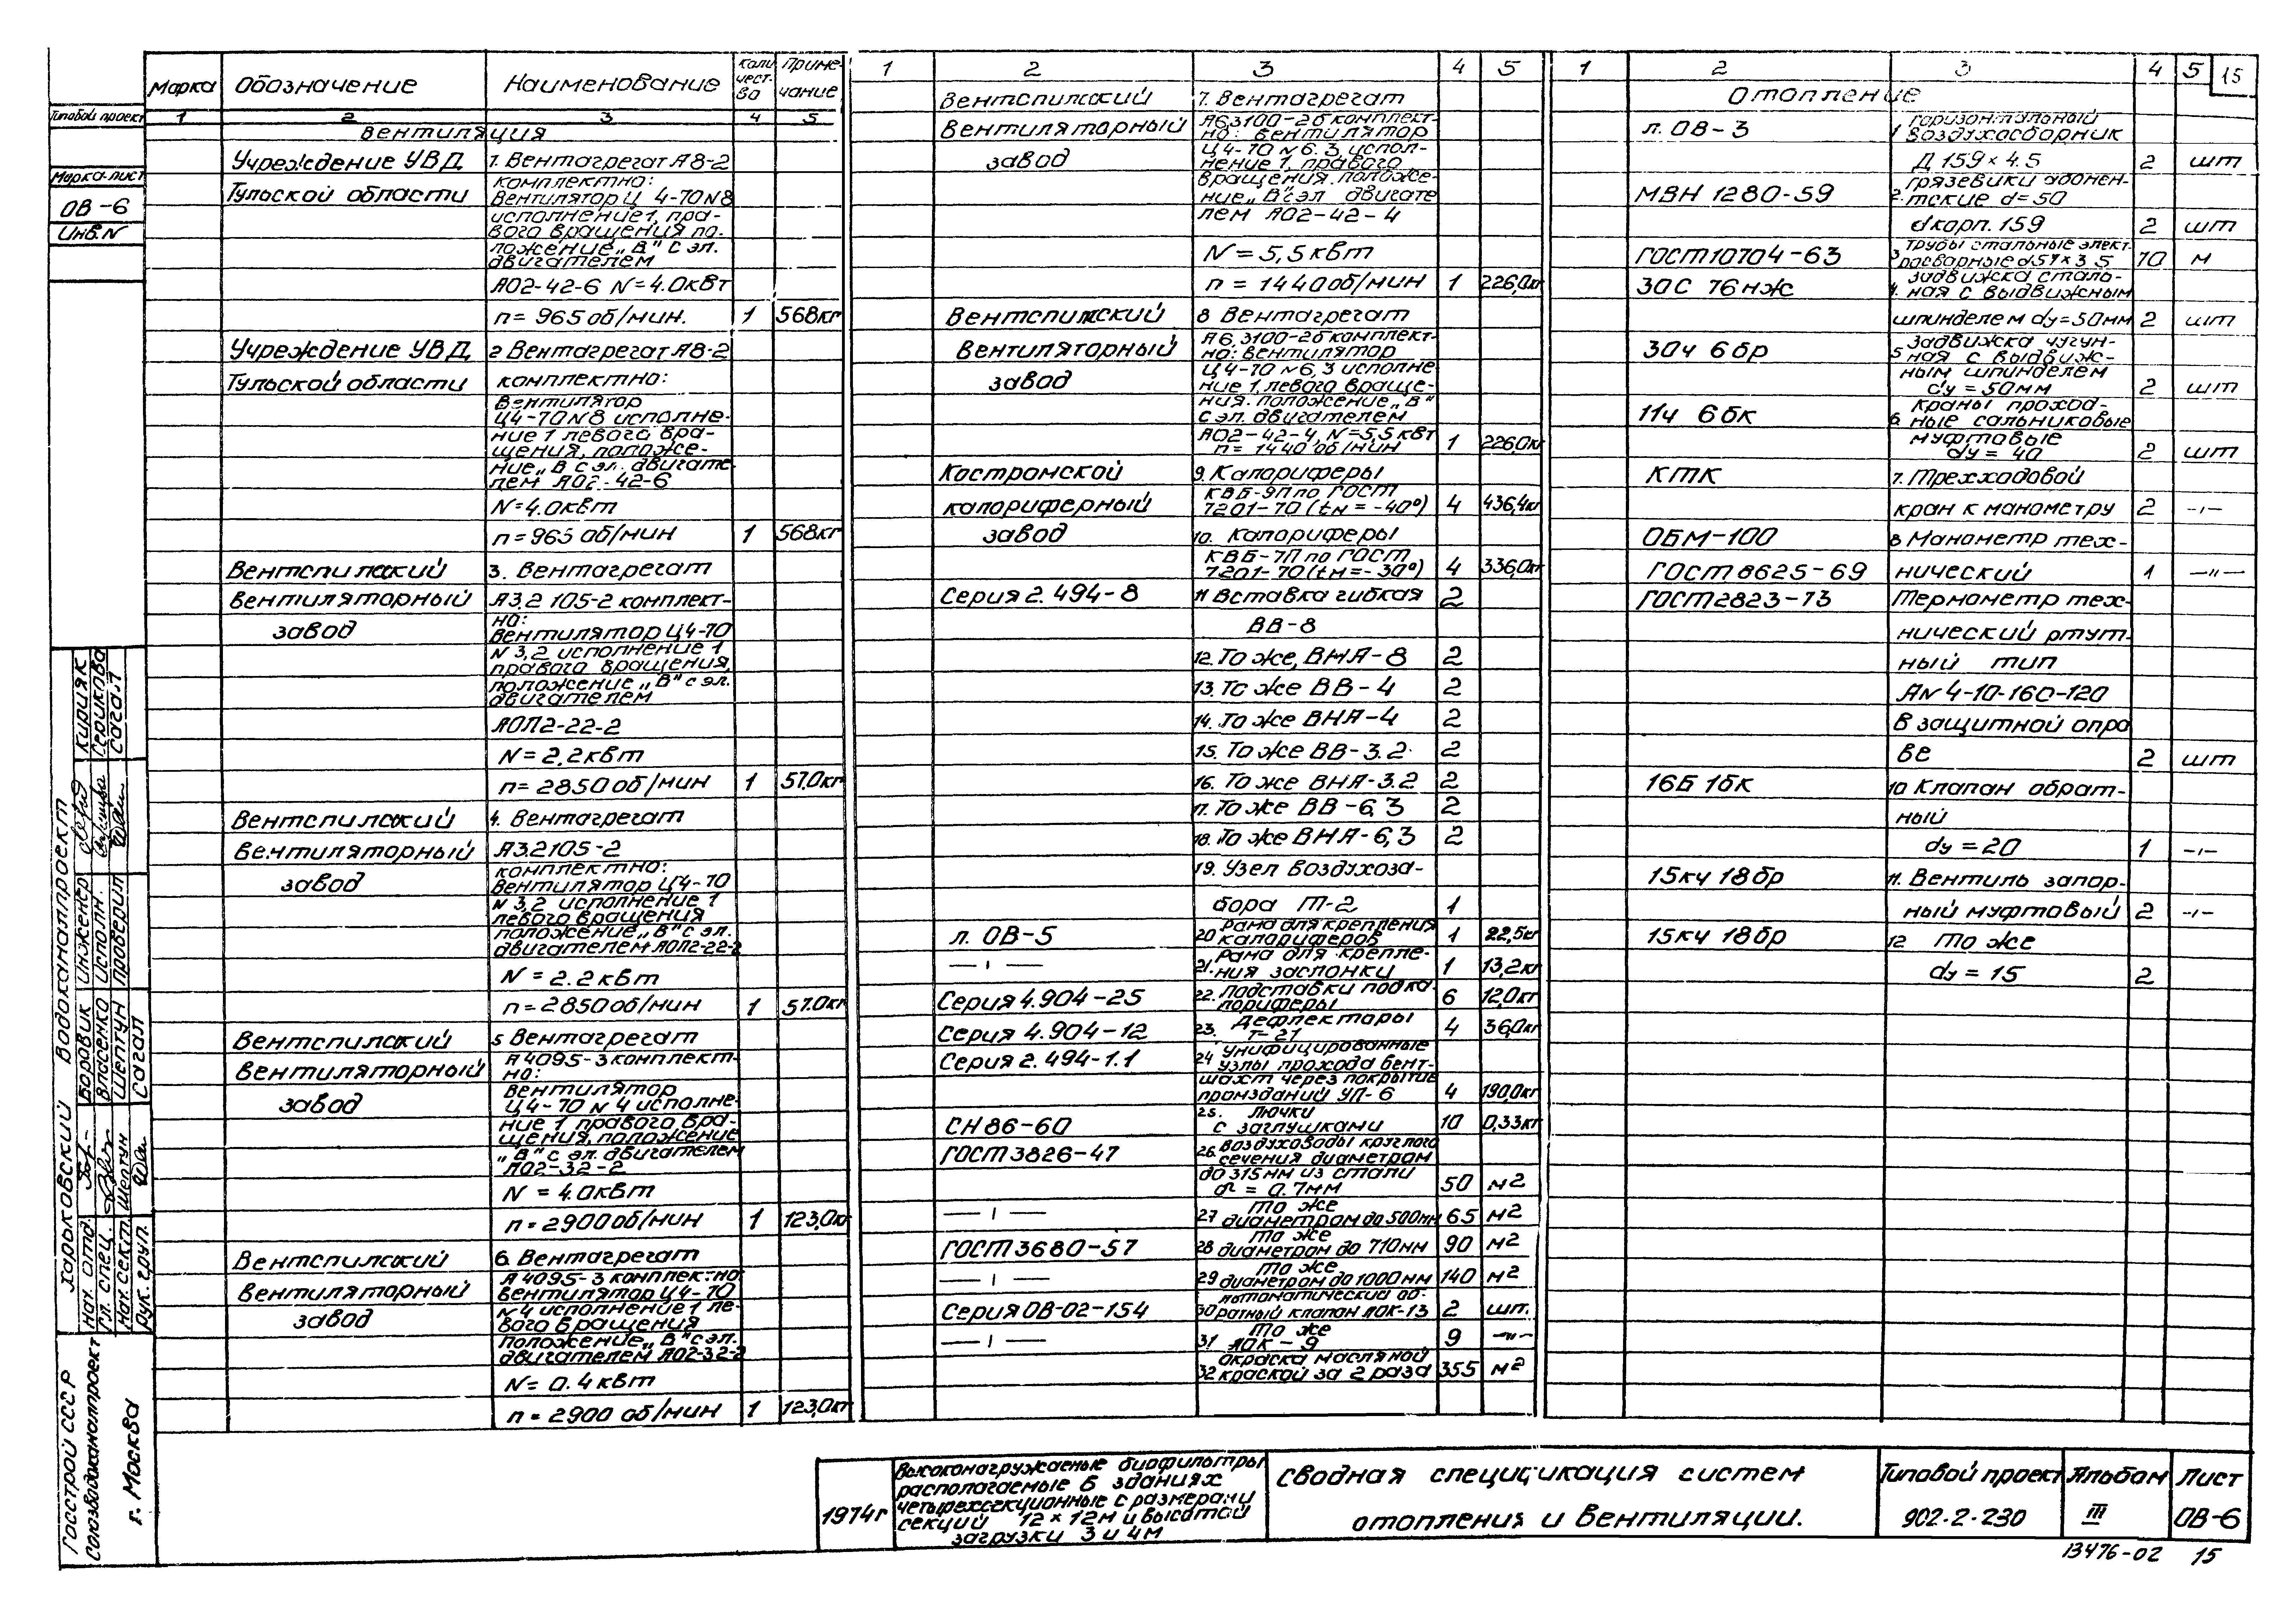 Марка Обозначение Наименование Коли чест- ва Приме- чание
1 2 3 4 5
Вентиляция
Учреждение УВД 1. Вентагрегат А8-2
Тульской области комплектно:
Вентилятор Ц 4-70 N8
исполнение 1, пра-
вого вращения по-
ложение „В" с эл.
двигателем
АО2-42-6 N=4.0квт
n=965 об/мин. 1 568кг
Учреждение УВД 2 Вентагрегат А8-2
Тульской области комплектно:
Вентилятор
Ц4-70 N8 исполне-
ние 1 левого вра-
щения, положе-
ние „В с эл. двигате-
лем АО2-42-6
N=4.0квт
n=965 об/мин 1 568кг
Вентспилский 3. Вентагрегат
Вентиляторный А3.2 105-2 комплект-
завод но:
Вентилятор Ц4-70
N 3,2 исполнение 1
правого вращения,
положение „В" с эл.
двигателем
АОЛ2-22-2
N=2,2квт
n=2850 об/мин 1 57.0кг
Вентспилский 4. Вентагрегат
Вентиляторный А3.2105-2
завод комплектно:
Вентилятор Ц4-70
N 3,2 исполнение 1
левого вращения
положение „В" с эл.
двигателем АОЛ2-22-2
N=2.2квт
n=2850 об/мин 1 57.0кг
Вентспилский 5 Вентагрегат
Вентиляторный А 4095-3 комплект-
завод но:
Вентилятор
Ц4-70 N 4 исполне-
ние 1 правого вра-
щения, положение
„В" с эл. двигателем
АО2-32-2
N = 4.0квт
n=2900 об/мин 1 123,0кг
Вентспилский 6. Вентагрегат
Вентиляторный А 4095-3 комплектно
завод Вентилятор Ц4-70
N4 исполнение 1 ле-
вого вращения
положение „В" с эл.
двигателем АО2-32-2
N= 0.4квт
n=2900 об/мин 1 123,0кг
1 2 3 4 5
Вентспилский 7. Вентагрегат
Вентиляторный А6,3100-2б комплект-
завод но: Вентилятор
Ц4-70 N 6.3 испол-
нение 1, правого
вращения положе-
ние „В" эл двигате
лем АО2-42-4
N=5,5квт
n=1440 об/мин 1 226,0кг
Вентспилский 8 Вентагрегат
Вентиляторный А6,3100-2б комплект-
завод но: Вентилятор
Ц4-70 N6,3 исполне
ние 1, левого враще-
ния. положение „В"
с эл. двигателем
АО2-42-4, N=5,5квт
n=1440 об/мин 1 226.0кг
Костромской 9. Калориферы
калориферный КВБ-9П по ГОСТ
7201-70 (tн=-40°) 4 436,4кг
завод 10. Калориферы
КВБ-7П по ГОСТ
7201-70 (tн=-30°) 4 336,0кг
Серия 2.494-8 11 Вставка гибкая 2
ВВ-8
12. То же, ВНА-8 2
13. То же ВВ-4 2
14. То же ВНА-4 2
15. То же ВВ-3.2 2
16. То же ВНА-3.2 2
17. То же ВВ-6,3 2
18. То же ВНА-6,3 2
19. Узел воздухоза-
бора Т-2 1
л. ОВ-5 20 Рама для крепления
калориферов 1 22,5кг
—„— 21. Рама для крепле-
ния заслонки 1 13,2кг
Серия 4.904-25 22. Подставки под ка-
лориферы 6 12,0кг
Серия 4.904-12 23. Дефлекторы
Т-21 4 36,0кг
Серия 2.494-1.1 24 Унифицированные
узлы прохода вент-
шахт через покрытие
промзданий УП-6 4 190,0кг
СН 86-60 25. Лючки
с заглушками 10 0,33кг
ГОСТ 3826-47 26. Воздуховоды круглого
сечения диаметром
до 315мм из стали
δ = 0.7мм 50 м2
—„— 27 То же
диаметром до 500мм 65 м2
ГОСТ 3680-57 28 То же
диаметром до 710мм 90 м2
—„— 29 То же
диаметром до 1000мм 140 м2
Серия ОВ-02-154 30 Автоматический об-
ратный клапан АОК-13 2 шт.
—„— 31 То же
АОК-9 9 —„—
32 Окраска масляной
краской за 2 раза 355 м2
1 2 3 4 5 15
Отопление
л. ОВ-3 1 Горизонтальный
воздухосборник
Д 159×4.5 2 шт
МВН 1280-59 2. Грязевики абонен-
тские d=50
dкорп. 159 2 шт
ГОСТ 10704-63 3 Трубы стальные элект-
росварные d57×3 5 10 м
30С 76нж 4. Задвижка сталь-
ная с выдвижным
шпинделем dу=50мм 2 шт
30ч 6бр 5 Задвижка чугун-
ная с выдвиж-
ным шпинделем
dу=50мм 2 шт
11ч 6бк 6. Краны проход-
ные сальниковые
муфтовые
dу=40 2 шт
КТК 7. Трехходовой
кран к манометру 2 —„—
ОБМ-100 8 Манометр тех-
ГОСТ 8625-69 нический 1 —„—
ГОСТ 2823-73 Термометр тех-
нический ртут-
ный тип
АN 4-10-160-120
в защитной опра
ве 2 шт
16Б 1бк 10 Клапан обрат-
ный
dу=20 1 —„—
15кч 18бр 11. Вентиль запор-
ный муфтовый 2 —„—
15кч 18бр 12 То же
dу=15 2
Типовой проект
Марка-лист
ОВ-6
Инв.N
Харьковский Водоканалпроект
Нач. отд. Боровик Инженер Кирияк
Гл. спец. Власенко Исполн. Серикова
Нач. сект. Шептун Проверил Сагал
Рук. груп. Сагал
Госстрой СССР
Союзводоканалпроект
г. Москва
1974г
Высоконагружаемые биофильтры
располагаемые в зданиях
четырехсекционные с размерами
секций 12×12м и высотой
загрузки 3 и 4м
Сводная спецификация систем
отопления и вентиляции.
Типовой проект
902-2-230
Альбом
III
Лист
ОВ-6
13476-02 15